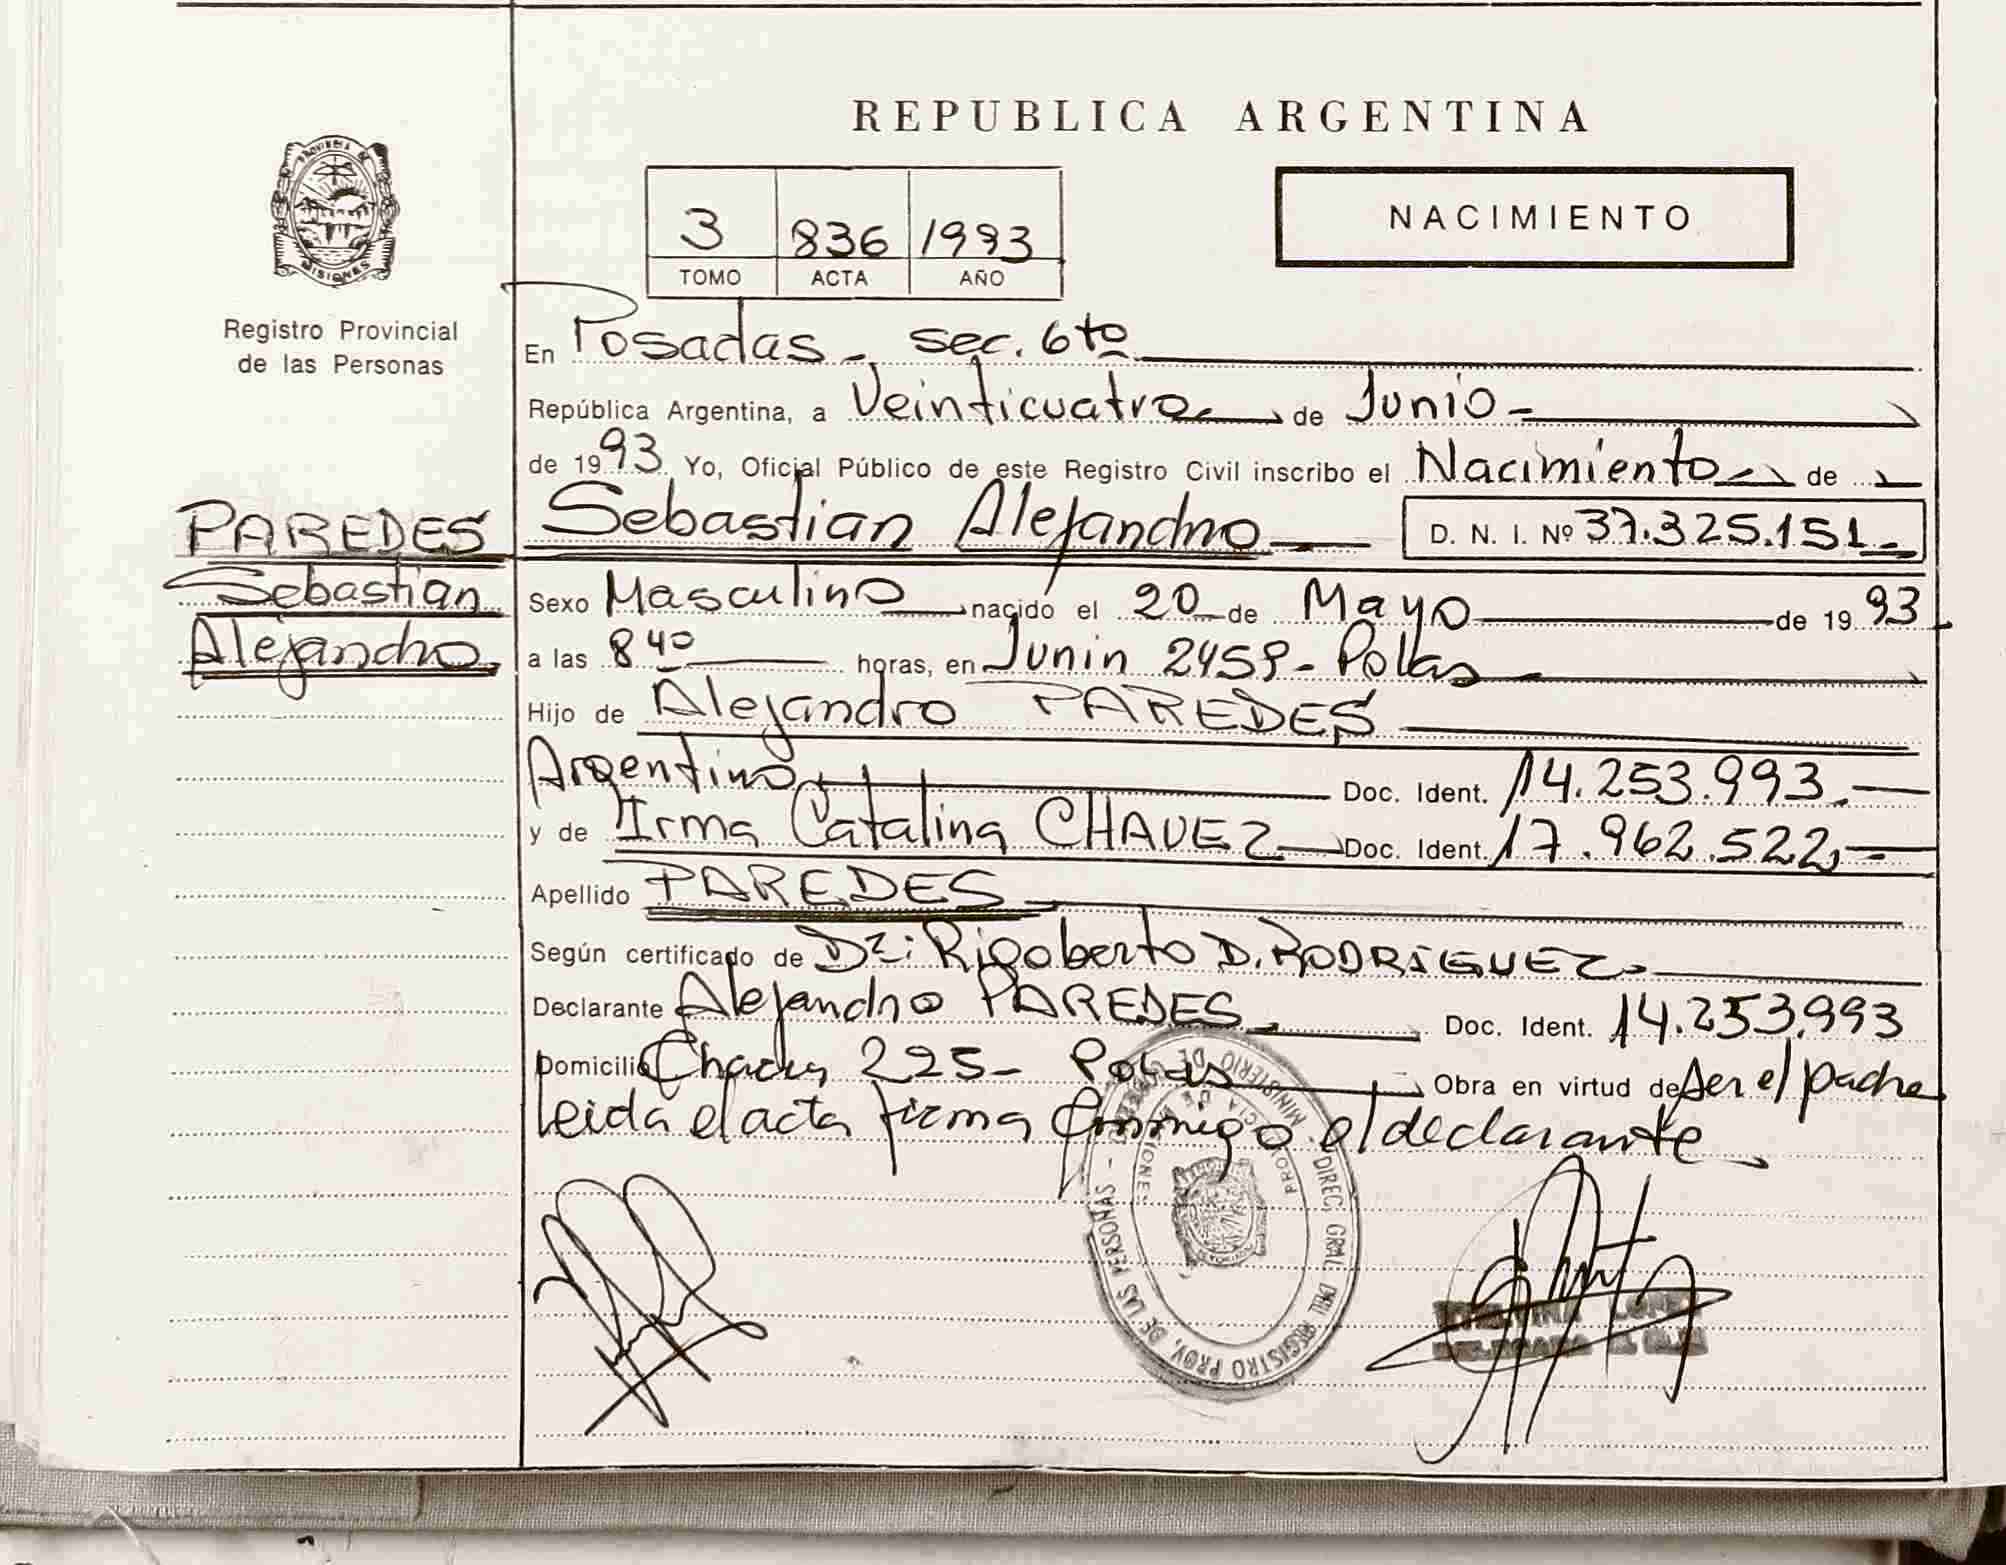 REPUBLICA ARGENTINA
PROVINCIA DE
MISIONES
Registro Provincial
de las Personas
3 836 1993
TOMO ACTA AÑO
NACIMIENTO
En Posadas - sec. 6to
República Argentina, a Veinticuatro de Junio -
de 1993 Yo, Oficial Público de este Registro Civil inscribo el Nacimiento de
PAREDES
Sebastian
Alejandro
Sebastian Alejandro D. N. I. Nº 37.325.151
Sexo Masculino nacido el 20 de Mayo de 1993
a las 8 40 horas, en Junin 2459 - Pdas
Hijo de Alejandro PAREDES
Argentino Doc. Ident. 14.253.993.-
y de Irma Catalina CHAVEZ Doc. Ident. 17.962.522.-
Apellido PAREDES
Según certificado de Dr: Rigoberto D. RODRIGUEZ.
Declarante Alejandro PAREDES Doc. Ident. 14.253.993
Domicilio 225 - Pdas Obra en virtud de ser el padre
Leida el acta firma Conmigo el declarante
DIREC. GRAL. DEL REGISTRO PROV. DE LAS PERSONAS -
MINISTERIO DE
PROVINCIA DE MISIONES
LOPEZ